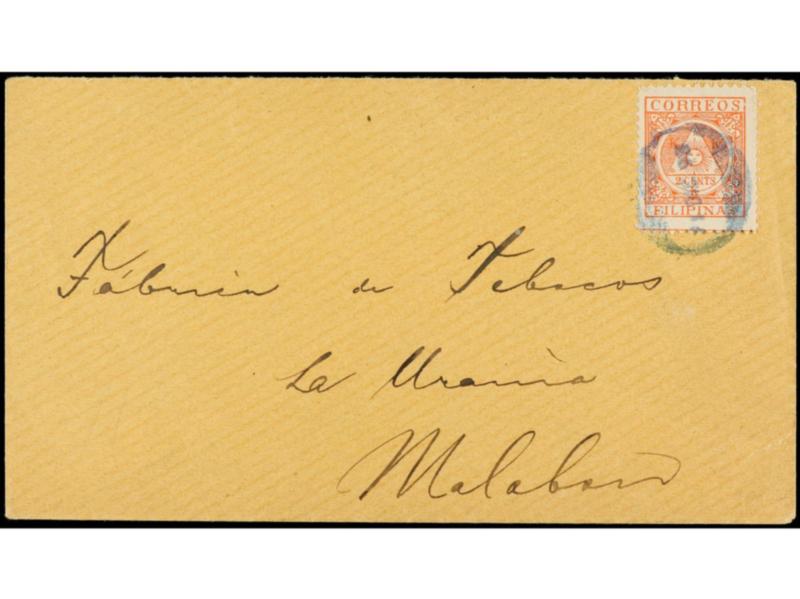 CORREOS
2 CENTS
FILIPINAS
Fábrica de Tabacos
La Urania
Malabon